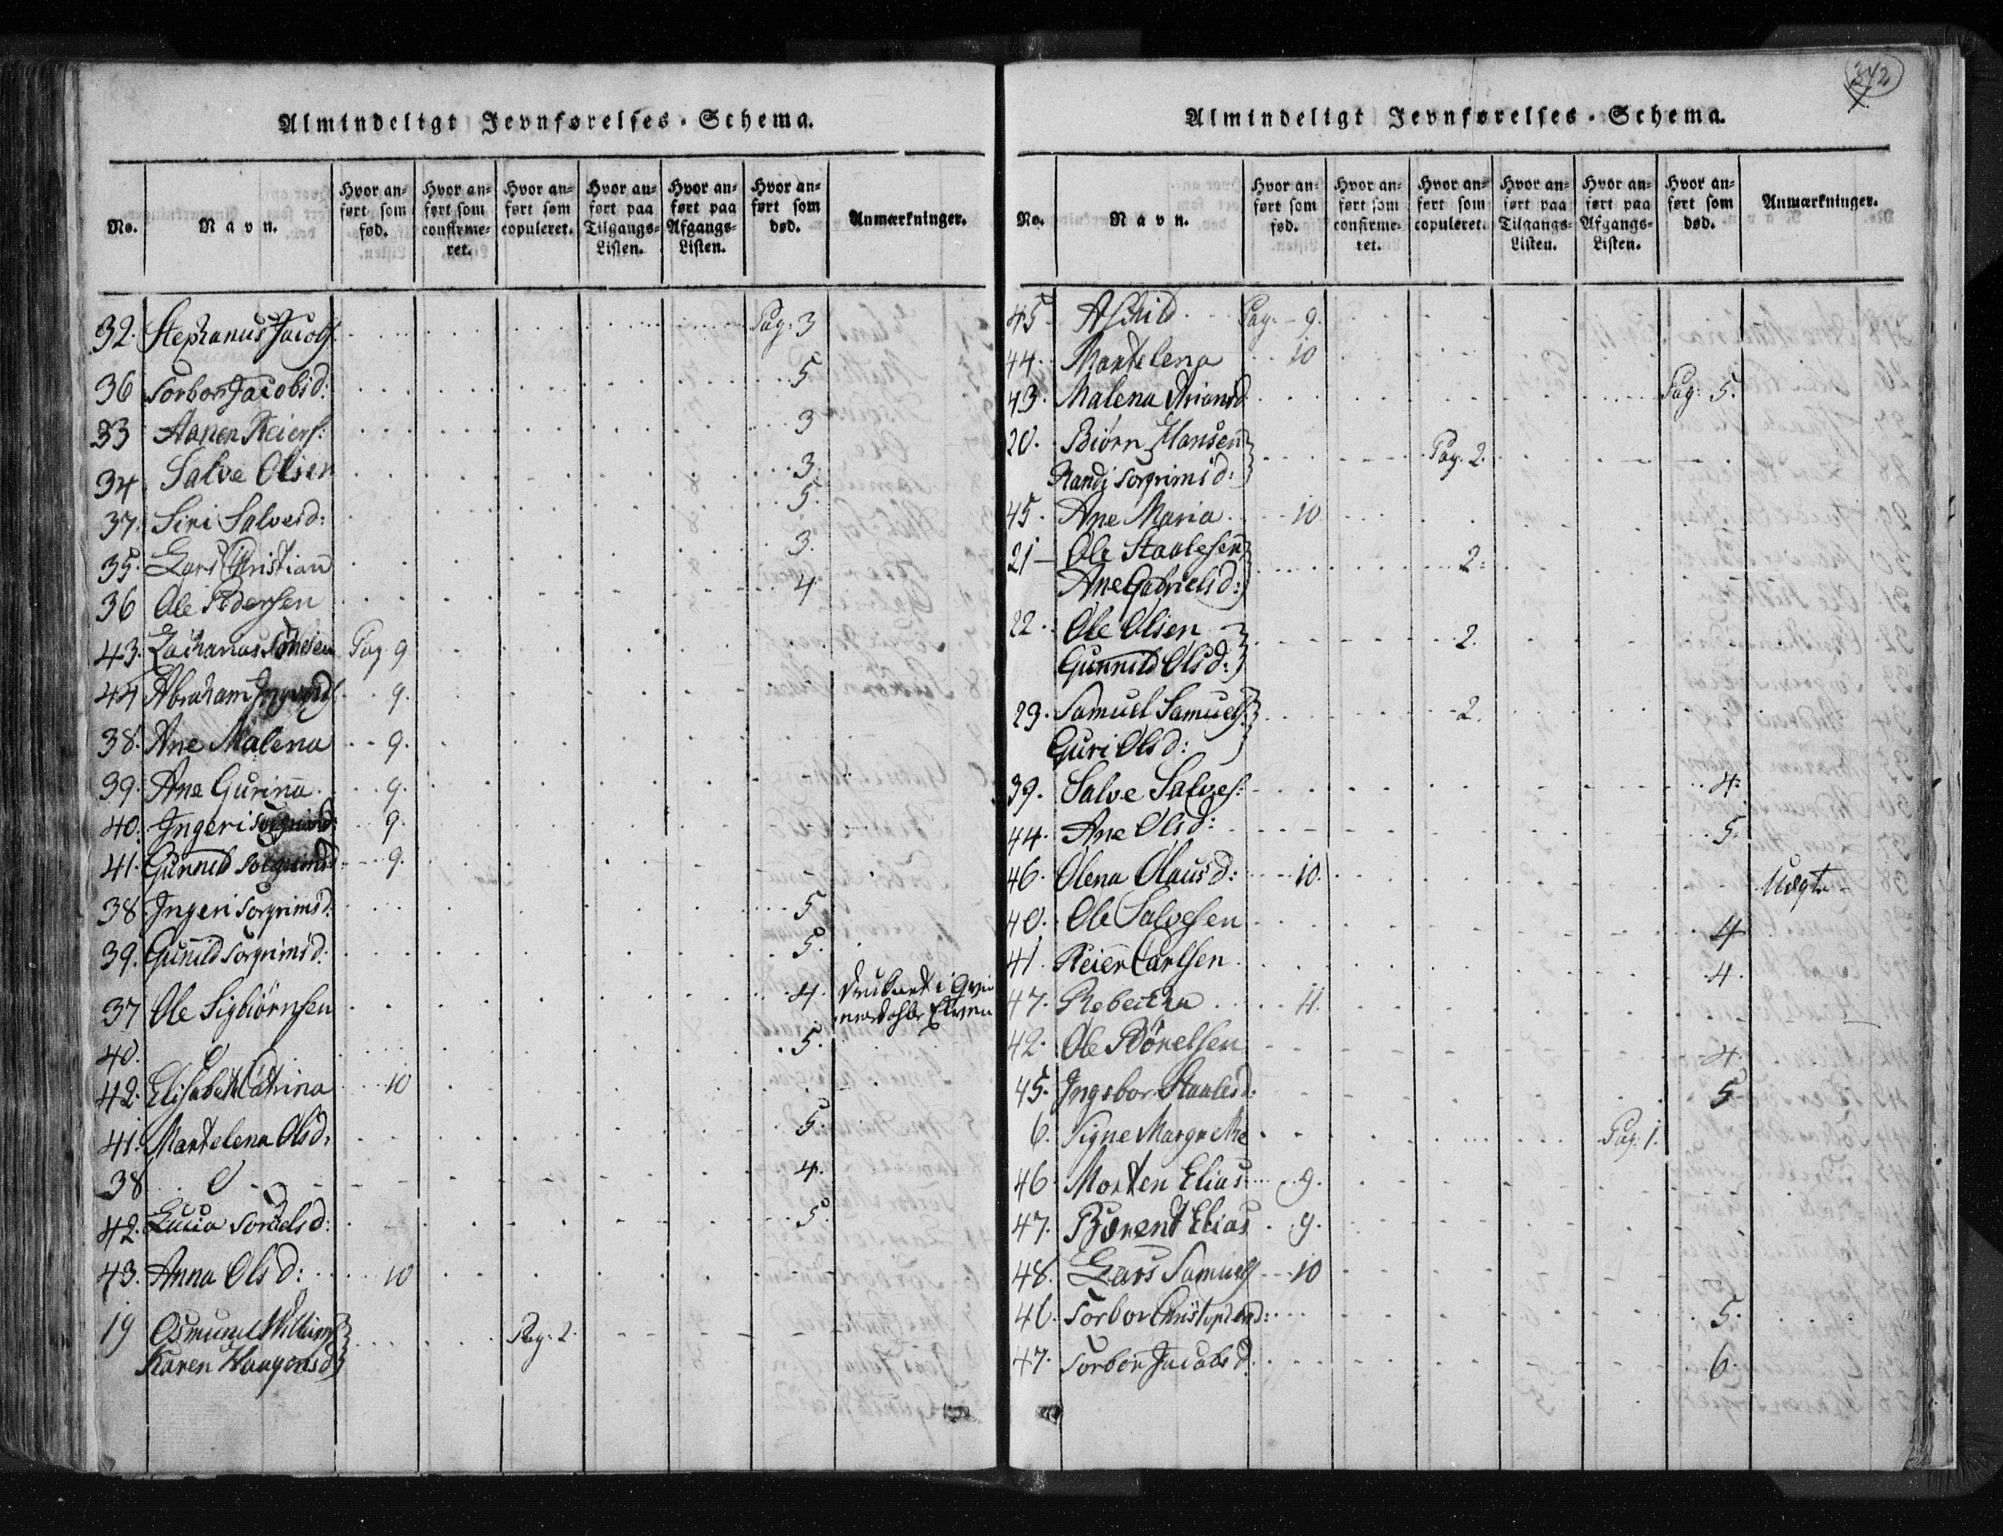 Almindeligt Jevnførelses-Schema.
No. Navn. Hvor anført som fød. Hvor anført som confirmeret. Hvor anført som copuleret. Hvor anført paa Tilgangs-Listen. Hvor anført paa Afgangs-Listen. Hvor anført som død. Anmærkninger.
32. Stephanus Jacobs. Pag: 3
36 Torbor Jacobsd: 5
33 Aanen Reiers: 3
34. Salve Olsen 3.
37. Siri Salvesd: 5.
35. Lars Christian 3.
36 Ole Pedersen 4
43. Zacharias Tønesen Pag 9
44 Abraham 9.
38. Ane Malena 9.
39. Ane Gurina 9.
40. Ingeri 9.
41. Gunnild Torgrimsd 9.
38. Ingeri Torgrimsd: 5
39. Gunild Torgrimsd: 5.
37 Ole Sigbiørnsen 4. druknet i
Elven
40. 5.
42. Elisabet Catrina 10
41. Martelena Olsd. 5.
38 4.
42. Lucia Tordelsd: 5.
43. Anna Olsd: 10
19 Osmund Williams
Karen Haagensd Pag: 2.
342
Almindeligt Jevnførelses-Schema.
No. Navn. Hvor anført som fød. Hvor anført som confirmeret. Hvor anført som copuleret. Hvor anført paa Tilgangs-Listen. Hvor anført paa Afgangs-Listen. Hvor anført som død. Anmærkninger.
45. Aschild Pag. 9.
44. Martelena 10
43. Malena Arionsd Pag: 5.
20. Biørn Hansen
Randi Torgrimsd: Pag. 2.
45. Ane Maria 10.
21 Ole Staalesen
Ane Gabrielsd: 2.
22. Ole Olsen
Gunnild Olsd: 2.
23. Samuel Samuels.
Guri Olsd: 2.
39. Salve Salves: 4.
44. Ane Olsd: 5.
46. Olena Olausd: 10. Uægte
40. Ole Salvesen 4
41. Reier Carlsen 4.
47. Rebecka 11.
42. Ole Børelsen 4.
45. Ingebor Staalesd: 5
6. Signe Margrethe Pag: 1.
46. Morten Elias 9.
47. Berent Elias 9.
48. Lars Samuels 10
46. Torbor Christophersd: 5.
47. Torbor Jacobsd. 6.